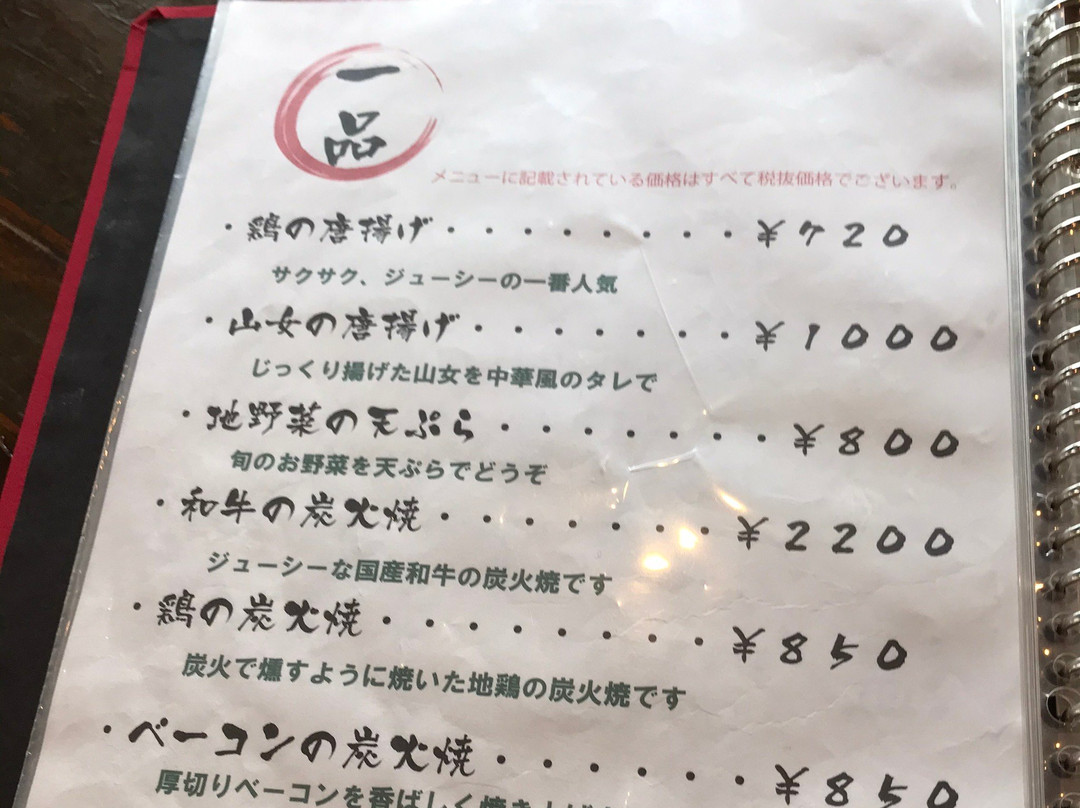 一品
メニューに記載されている価格はすべて税抜価格でございます。
・鶏の唐揚げ・・・・・・・・・¥720
サクサク、ジューシーの一番人気
・山女の唐揚げ・・・・・・・・¥1000
じっくり揚げた山女を中華風のタレで
・地野菜の天ぷら・・・・・・・・¥800
旬のお野菜を天ぷらでどうぞ
・和牛の炭火焼・・・・・・・¥2200
ジューシーな国産和牛の炭火焼です
・鶏の炭火焼・・・・・・・・・¥850
炭火で燻すように焼いた地鶏の炭火焼です
・ベーコンの炭火焼・・・・・・¥850
厚切りベーコンを香ばしく焼き